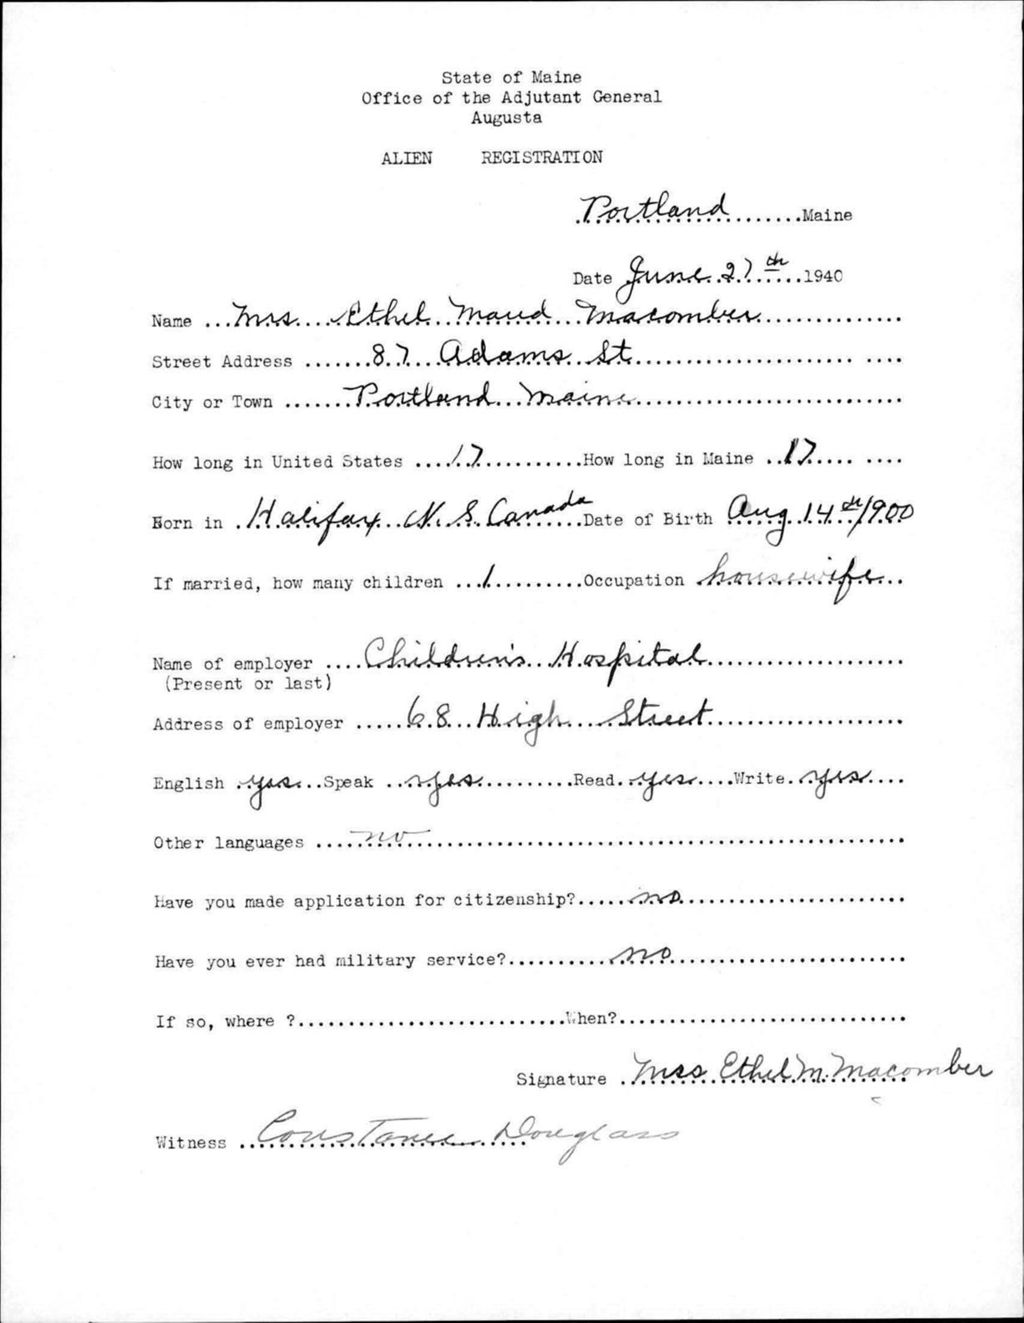 State of Maine
Office of the Adjutant General
Augusta
ALIEN REGISTRATION
Portland Maine
Date June 27th 1940
Name Mrs Ethel Maud Macomber
Street Address 87 Adams St
City or Town Portland Maine
How long in United States 17 How long in Maine 17
Born in Halifax N. S. Canada Date of Birth Aug 14th 1900
If married, how many children 1 Occupation housewife
Name of employer Children's Hospital
(Present or last)
Address of employer 68 High Street
English yes Speak yes Read yes Write yes
Other languages no
Have you made application for citizenship? no
Have you ever had military service? no
If so, where ? When?
Signature Mrs Ethel M. Macomber
Witness Constance Douglass